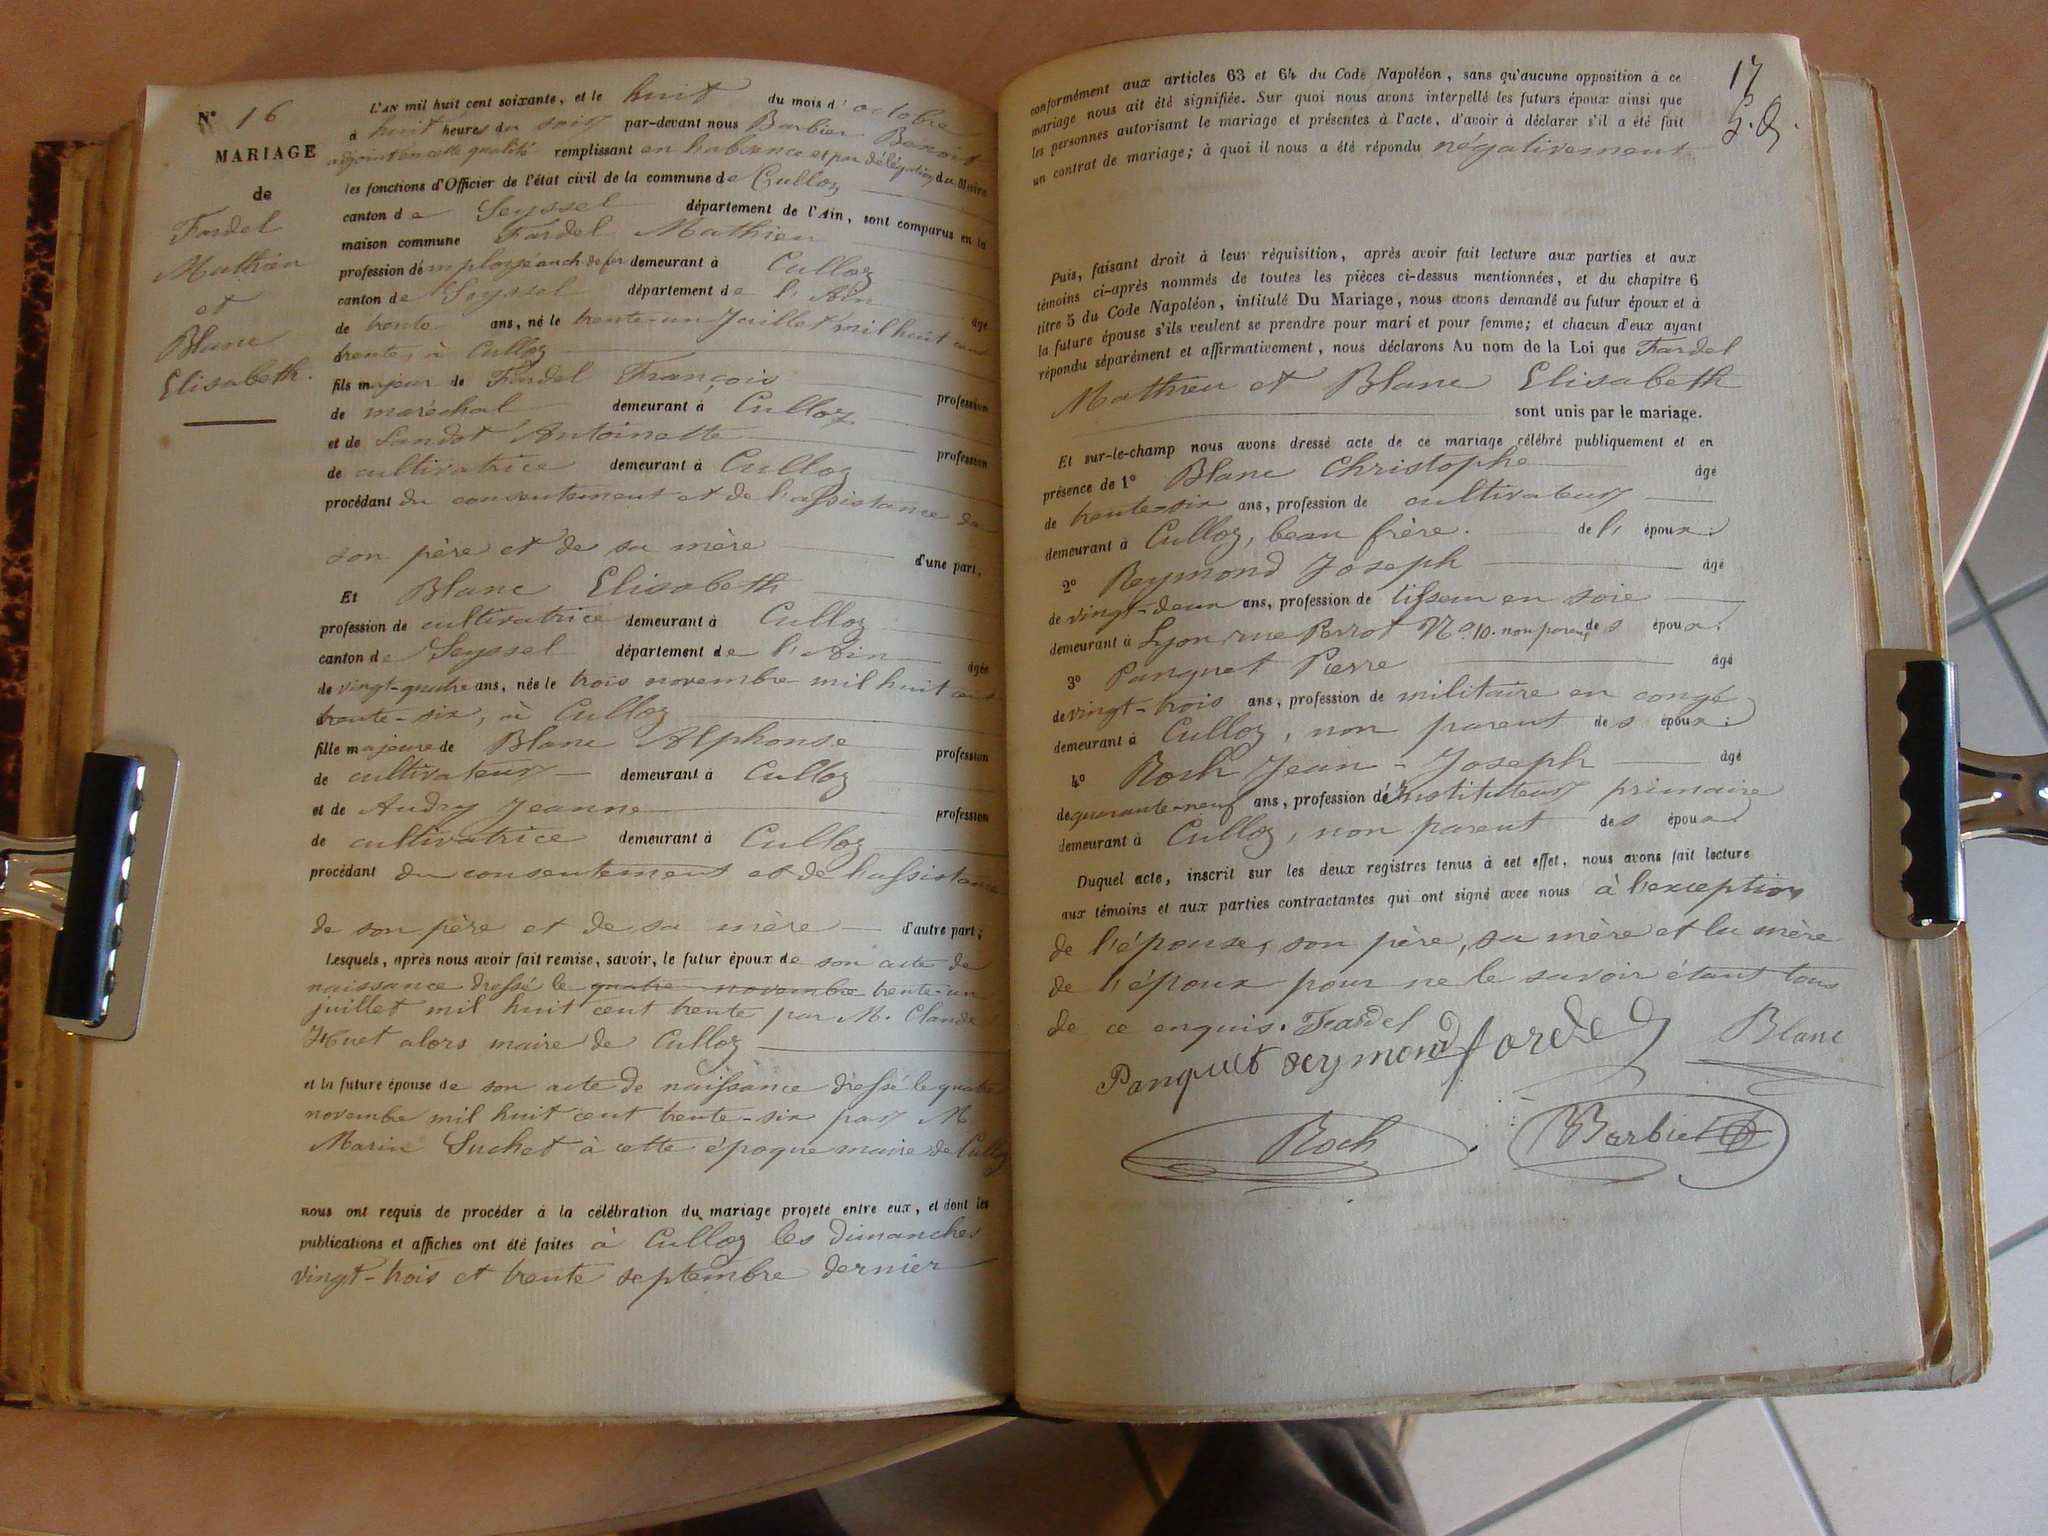 N° 16
MARIAGE
de
Fardel
Mathieu
et
Blanc
Elisabeth.
L'AN mil huit cent soixante, et le huit du mois d'octobre
à huit heures du soir par-devant nous Barbier Benoit
adjoint en cette qualité remplissant en l'absence et par délégation du Maire
les fonctions d'Officier de l'état civil de la commune de Culloz
canton de Seyssel département de l'Ain, sont comparus en la
maison commune Fardel Mathieu
profession d'employé au ch. de fer demeurant à Culloz
canton de Seyssel département de l'Ain âgé
de trente ans, né le trente-un Juillet mil huit cent
trente, à Culloz
fils majeur de Fardel François profession
de maréchal demeurant à Culloz
et de Landot Antoinette profession
de cultivatrice demeurant à Culloz
procédant du consentement et de l'assistance de
son père et de sa mère d'une part,
Et Blanc Elisabeth
profession de cultivatrice demeurant à Culloz
canton de Seyssel département de l'Ain âgée
de vingt-quatre ans, née le trois novembre mil huit cent
trente-six, à Culloz
fille majeure de Blanc Alphonse profession
de cultivateur demeurant à Culloz
et de Audry Jeanne profession
de cultivatrice demeurant à Culloz
procédant du consentement et de l'assistance
de son père et de sa mère d'autre part;
Lesquels, après nous avoir fait remise, savoir, le futur époux de son acte de
naissance dressé le quatre novembre trente-un
juillet mil huit cent trente par M. Claude
Huet alors maire de Culloz
et la future épouse de son acte de naissance dressé le quatre
novembre mil huit cent trente-six par M
Marin Suchet à cette époque maire de Culloz
nous ont requis de procéder à la célébration du mariage projeté entre eux, et dont les
publications et affiches ont été faites à Culloz les dimanches
vingt-trois et trente septembre dernier
17
conformément aux articles 63 et 64 du Code Napoléon, sans qu'aucune opposition à ce
mariage nous ait été signifiée. Sur quoi nous avons interpellé les futurs époux ainsi que
les personnes autorisant le mariage et présentes à l'acte, d'avoir à déclarer s'il a été fait
un contrat de mariage; à quoi il nous a été répondu négativement
Puis, faisant droit à leur réquisition, après avoir fait lecture aux parties et aux
témoins ci-après nommés de toutes les pièces ci-dessus mentionnées, et du chapitre 6
titre 5 du Code Napoléon, intitulé Du Mariage, nous avons demandé au futur époux et à
la future épouse s'ils veulent se prendre pour mari et pour femme; et chacun d'eux ayant
répondu séparément et affirmativement, nous déclarons Au nom de la Loi que Fardel
Mathieu et Blanc Elisabeth
sont unis par le mariage.
Et sur-le-champ nous avons dressé acte de ce mariage célébré publiquement et en
présence de 1° Blanc Christophe âgé
de trente-six ans, profession de cultivateur
demeurant à Culloz, beau frère. de l'époux.
2° Reymond Joseph âgé
de vingt-deux ans, profession de tisseur en soie
demeurant à Lyon, rue Perrot N° 10. non parent des époux.
3° Panquet Pierre âgé
de vingt-trois ans, profession de militaire en congé
demeurant à Culloz, non parent des époux.
4° Roch Jean-Joseph âgé
de quarante-neuf ans, profession d'Instituteur primaire
demeurant à Culloz, non parent des époux.
Duquel acte, inscrit sur les deux registres tenus à cet effet, nous avons fait lecture
aux témoins et aux parties contractantes qui ont signé avec nous à l'exception
de l'épouse, son père, sa mère et la mère
de l'époux pour ne le savoir étant tous
de ce enquis. Fardel
Panquet reymond fardel Blanc
Roch Barbier